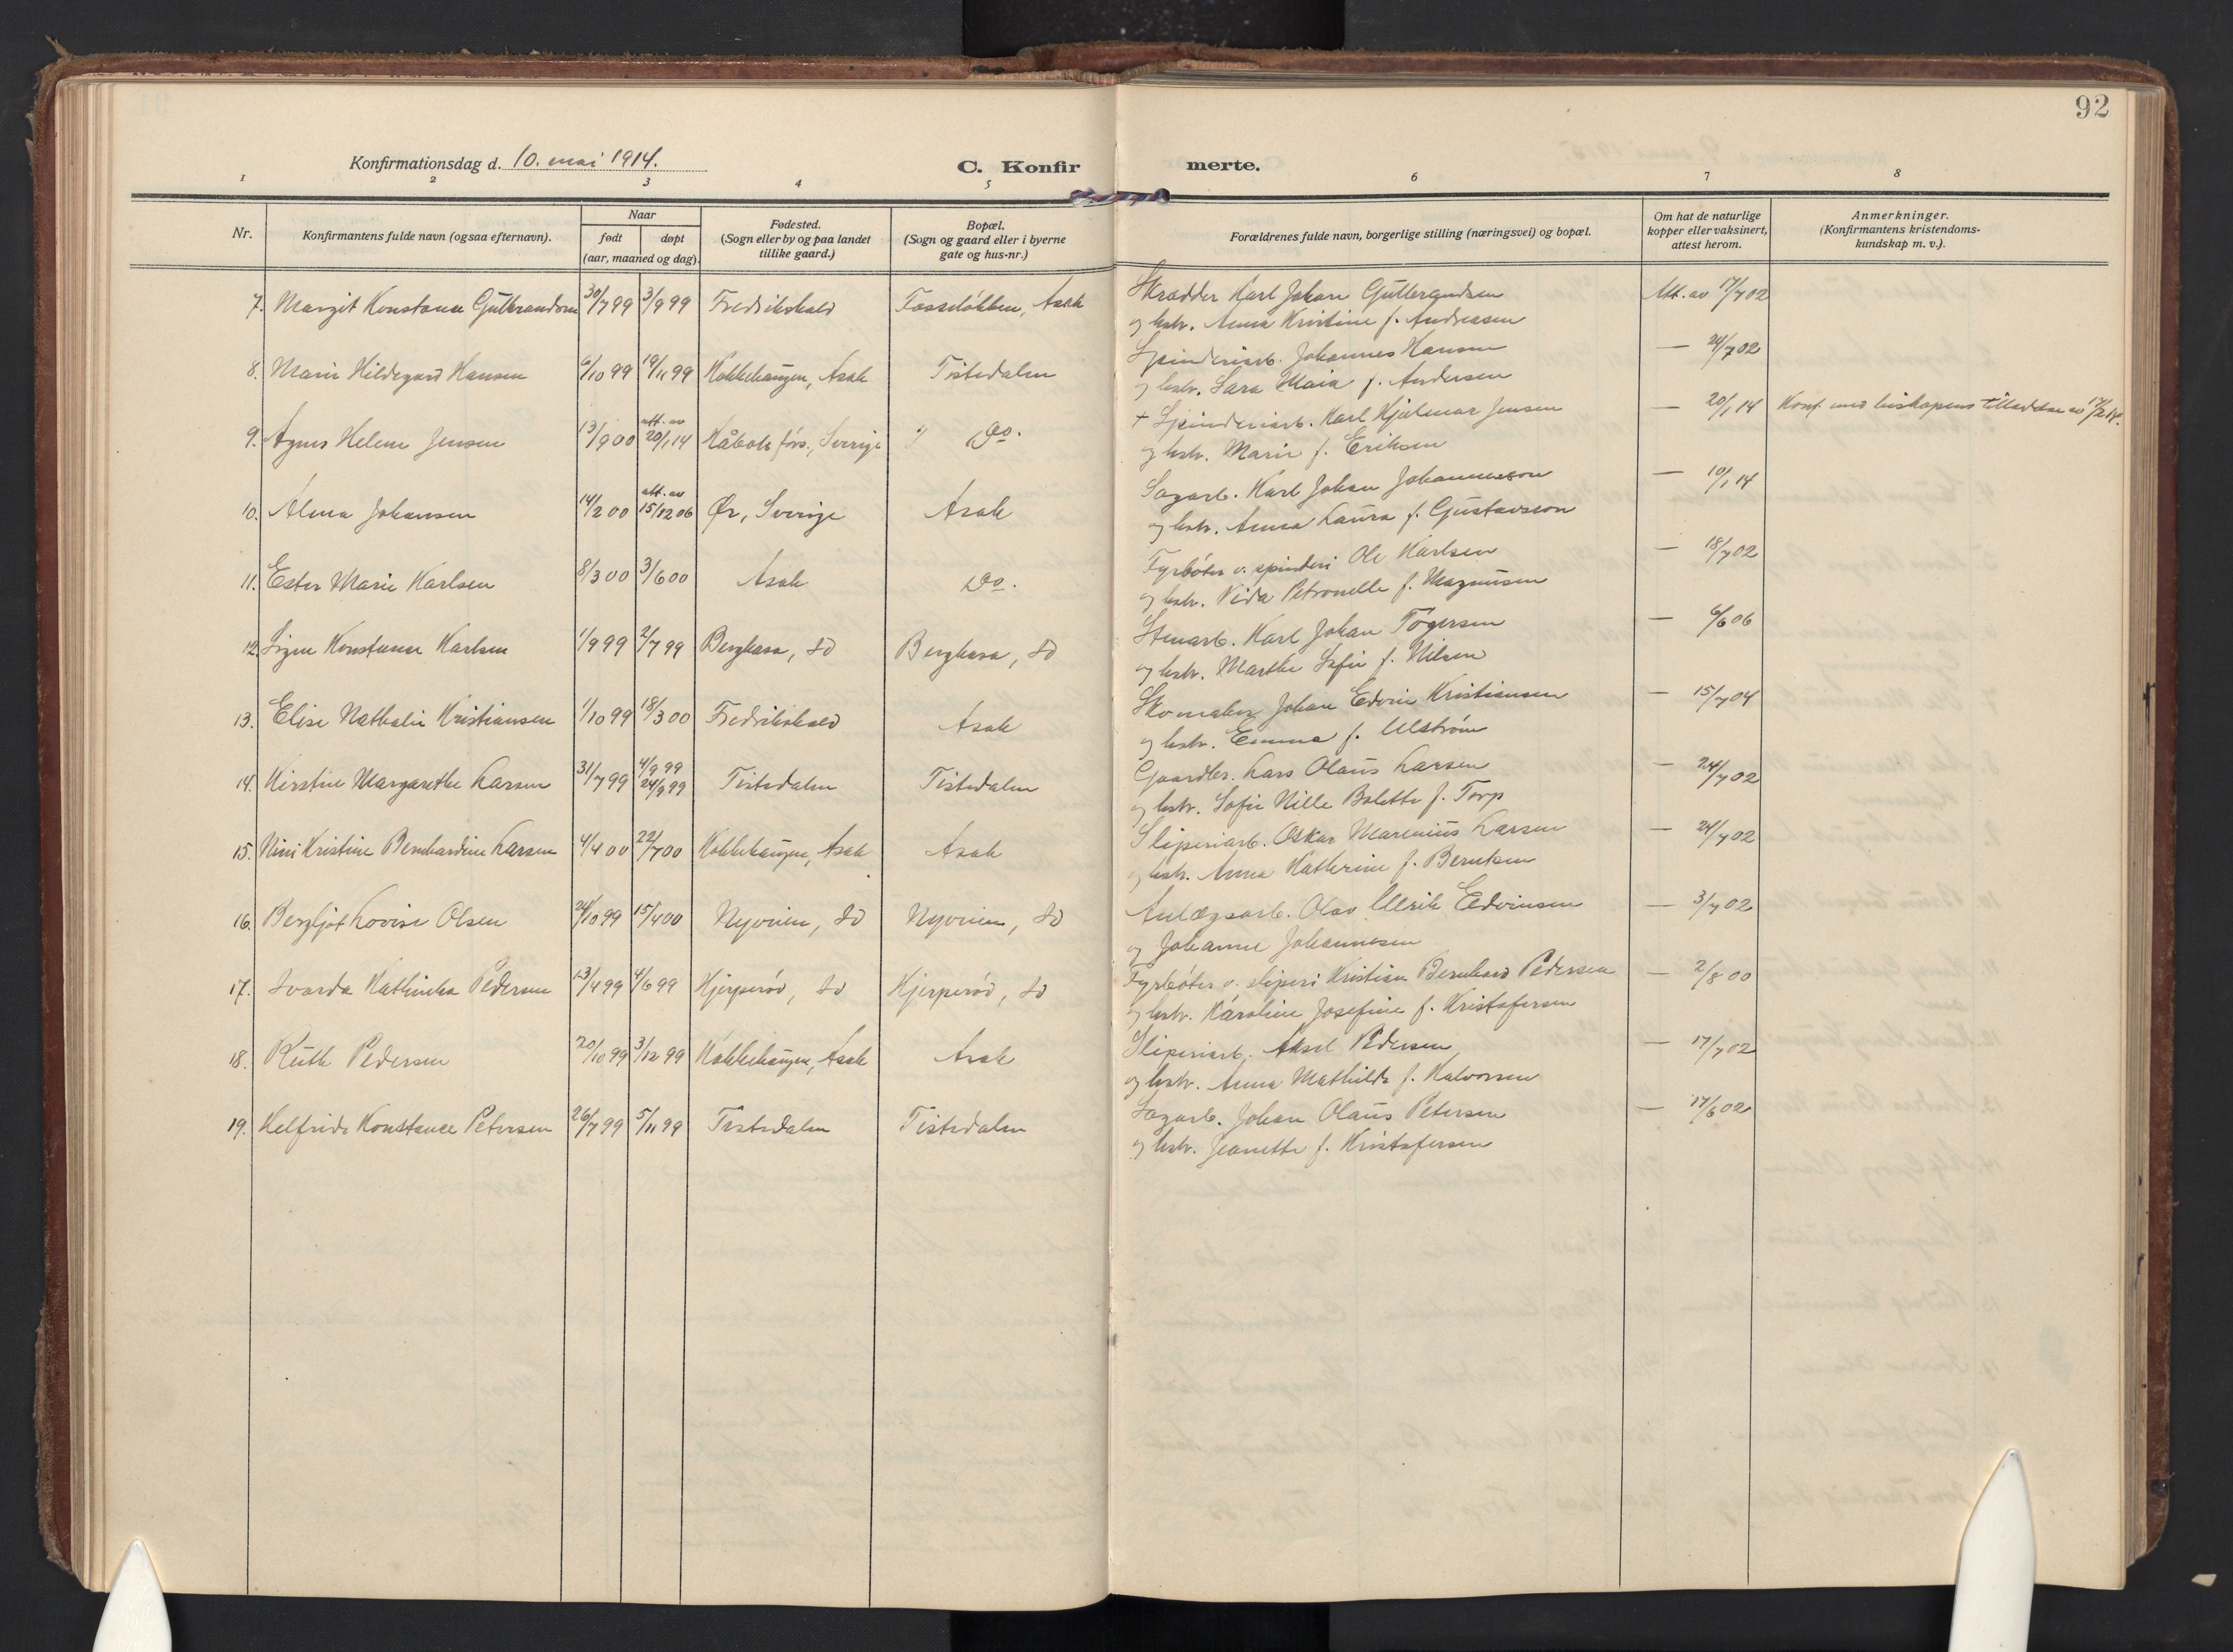 92
Konfirmationsdag d. 10. mai 1914.
C. Konfir
merte.
1 2 3 4 5 6 7 8
Nr.
Konfirmantens fulde navn (ogsaa efternavn).
Naar
født døpt
(aar, maaned og dag).
Fødested.
(Sogn eller by og paa landet
tillike gaard.)
Bopæl.
(Sogn og gaard eller i byerne
gate og hus-nr.)
Forældrenes fulde navn, borgerlige stilling (næringsvei) og bopæl.
Om hat de naturlige
kopper eller vaksinert,
attest herom.
Anmerkninger.
(Konfirmantens kristendoms-
kundskap m. v.).
7. Margit Konstanse Gulbrandsen 30/7 99 3/9 99 Fredrikshald Fosseløkken, Asak Skrædder Karl Johan Gulbrandsen Att. av 17/7 02
og hstr. Anna Kristine f. Andreasen
8. Marie Hildegard Hansen 6/10 99 19/11 99 Kokkehaugen, Asak Tistedalen Spinderiarb. Johannes Hansen — 24/7 02
og hstr. Sara Maia f. Andersen
9. Agnes Helene Jensen 13/9 00 att. av 20/1 14 Håbols förs., Sverige Do. + Spinderiarb. Karl Hjalmar Jensen — 20/1 14 Konf. med biskopens tilladelse av 17/2 14.
og hstr. Marie f. Eriksen
10. Alma Johansen 14/2 00 att. av 15/12 06 Ør, Sverige Asak Sagarb. Karl Johan Johannesson — 10/1 14
og hstr. Anna Laura f. Gustavsson
11. Ester Marie Karlsen 8/3 00 3/6 00 Asak Do. Fyrbøter v. spinderi Ole Karlsen — 18/7 02
og hstr. Vida Petronelle f. Magnussen
12. Signe Konstanse Karlsen 1/9 99 2/7 99 Bergkasa, Id Bergkasa, Id Stenarb. Karl Johan Tøgersen — 6/6 06
og hstr. Marthe Sofie f. Nilsen
13. Elise Nathalie Kristiansen 1/10 99 18/3 00 Fredrikshald Asak Skomaker Johan Edvin Kristiansen — 15/7 04
og hstr. Emma f. Ulström
14. Kirstine Margarethe Larsen 31/7 99 4/9 99 24/9 99 Tistedalen Tistedalen Gaardbr. Lars Olaus Larsen — 24/7 02
og hstr. Sofie Nille Bolette f. Torp
15. Nini Kristine Bernhardine Larsen 4/4 00 22/7 00 Kokkehaugen, Asak Asak Sliperiarb. Oskar Marenius Larsen — 24/7 02
og hstr. Anna Katherine f. Berntsen
16. Bergljot Lovise Olsen 24/10 99 15/4 00 Nyveien, Id Nyveien, Id Anlægsarb. Olav Ulrik Edvinsen — 3/7 02
og Johanne Johannesen
17. Svarda Kathinka Pedersen 13/4 99 4/6 99 Hjerperød, Id Hjerperød, Id Fyrbøter v. sliperi Kristian Bernhard Pedersen — 2/8 00
og hstr. Karoline Josefine f. Kristofersen
18. Ruth Pedersen 20/10 99 3/12 99 Kokkehaugen, Asak Asak Sliperiarb. Aksel Pedersen — 17/7 02
og hstr. Anna Mathilde f. Halvorsen
19. Helfride Konstance Petersen 26/7 99 5/11 99 Tistedalen Tistedalen Sagarb. Johan Olaus Petersen — 17/6 02
og hstr. Jeanette f. Kristofersen